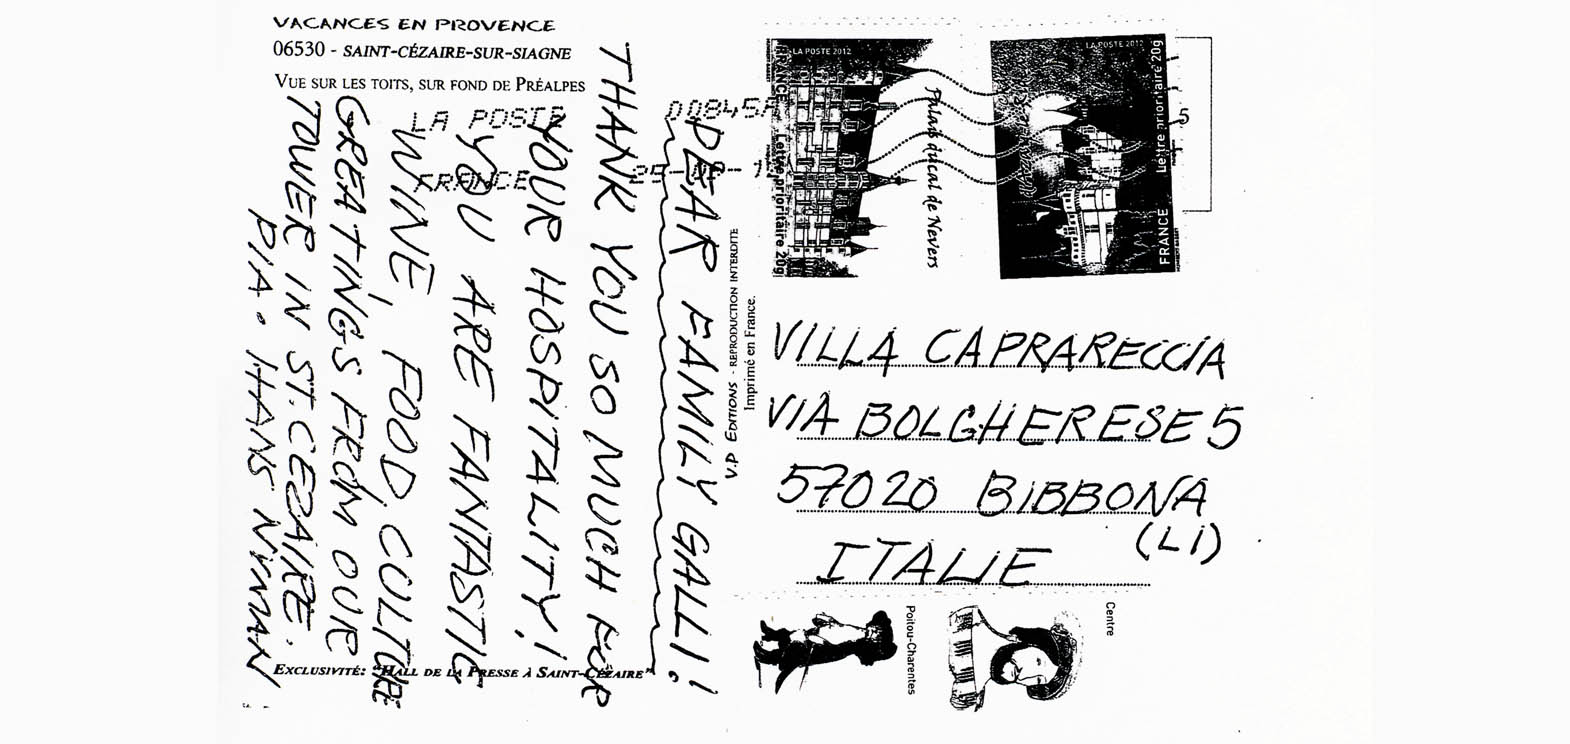 VACANCES EN PROVENCE
06530 - SAINT-CÉZAIRE-SUR-SIAGNE
VUE SUR LES TOITS, SUR FOND DE PRÉALPES
LA POSTE
FRANCE
00845A
DEAR FAMILY GALLI!
THANK YOU SO MUCH FOR
YOUR HOSPITALITY!
YOU ARE FANTASTIC
WINE, FOOD, CULTURE
GREATINGS FROM OUR
TOWER IN ST. CEZAIRE.
PIA • HANS NYMAN
EXCLUSIVITÉ: "HALL DE LA PRESSE À SAINT-CÉZAIRE"
V.P EDITIONS - REPRODUCTION INTERDITE
Imprimé en France.
LA POSTE 2012
FRANCE Lettre prioritaire 20g
Palais ducal de Nevers
LA POSTE 2012
FRANCE Lettre prioritaire 20g
VILLA CAPRARECCIA
VIA BOLGHERESE 5
57020 BIBBONA
(LI)
ITALIE
Poitou-Charentes
Centre